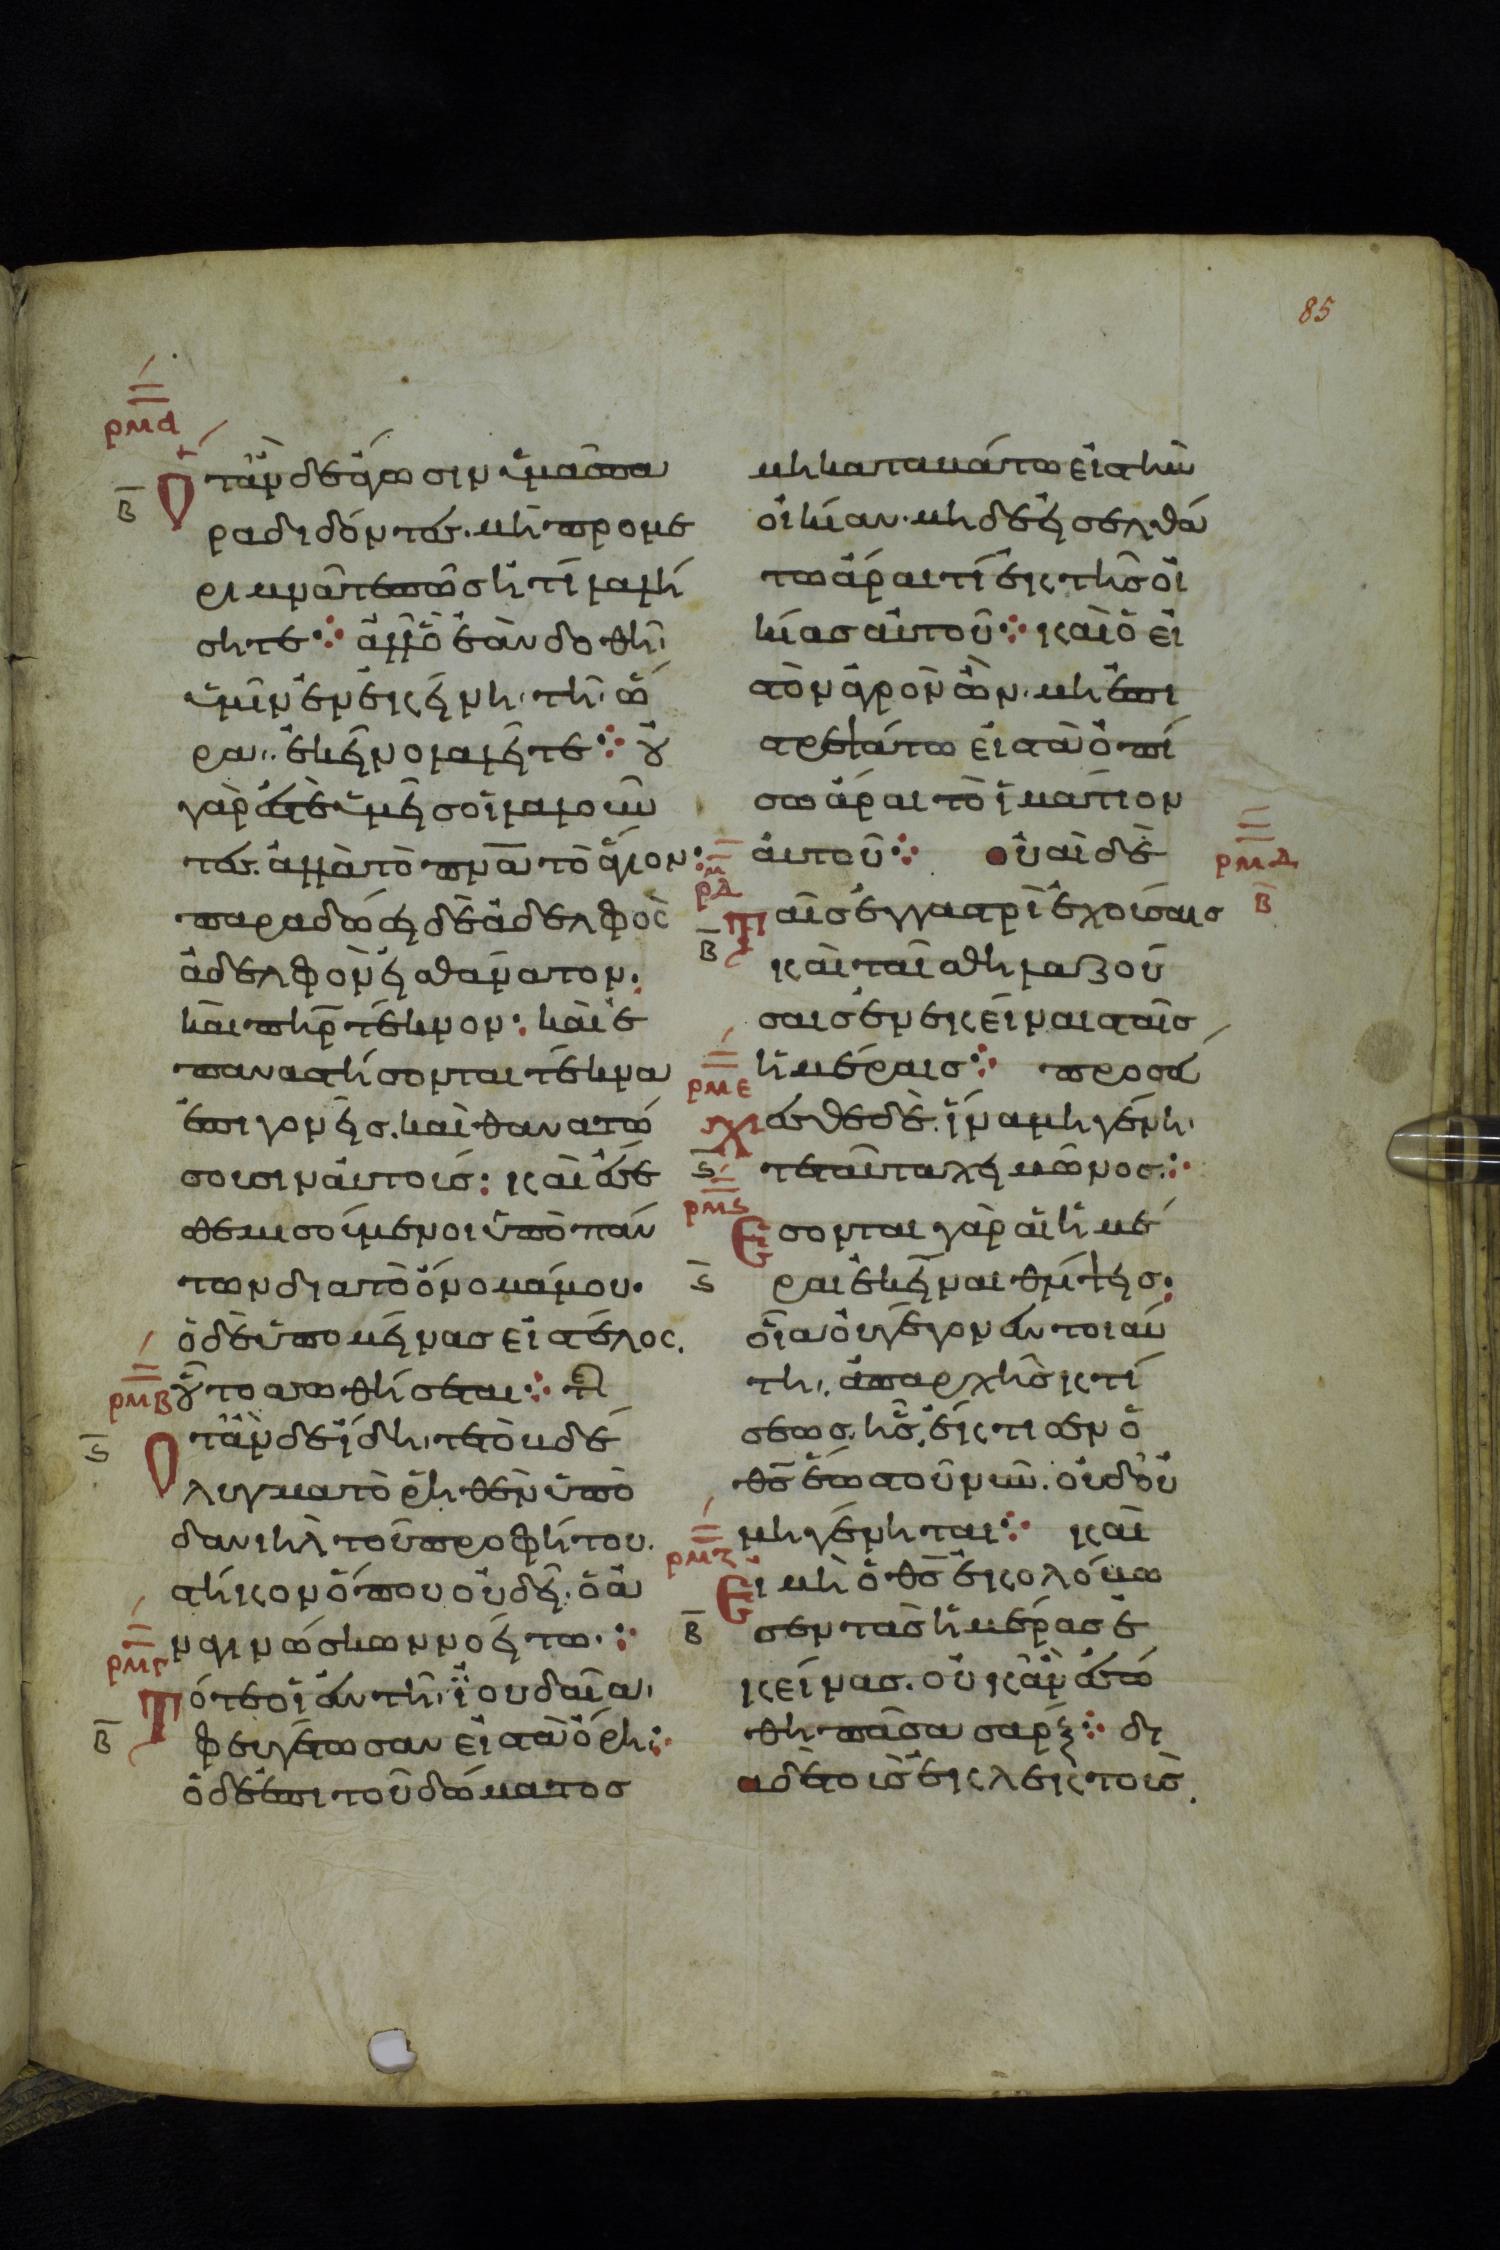 85
ρμα
Ὅταν δὲ ἄγωσιν ὑμᾶς πα
β
ραδιδόντες. μὴ προμε
ριμνᾶτε πῶς ἢ τί λαλή
σητε· ἀλλ' ὃ ἐὰν δοθῆ
ὑμῖν ἐν ἐκείνη τῆ ὥ
ρα. ἐκεῖνο λαλεῖτε· οὐ
γάρ ἐστε ὑμεῖς οἱ λαλοῦν
τες. ἀλλὰ τὸ πνα τὸ ἅγιον:
παραδώσει δὲ ἀδελφὸς
ἀδελφὸν εἰς θάνατον.
καὶ πηρ τέκνον: καὶ ἐ
παναστήσονται τέκνα
ἐπὶ γονεῖς. καὶ θανατώ
σουσιν αὐτούς: καὶ ἔσε
σθε μισούμενοι ὑπὸ πάν
των διὰ τὸ ὄνομά μου.
ὁ δὲ ὑπομείνας εἰς τέλος.
οὗτος σωθήσεται·
ρμβ
Ὅταν δὲ ἴδητε τὸ βδέ
ς
λυγμα τὸ ῥηθὲν ὑπὸ
δανιὴλ τοῦ προφήτου.
στήκον ὅπου οὐ δεῖ. ὁ ἀ
ναγινώσκων νοείτω·
ρμγ
Τότε οἱ ἐν τῆ ἰουδαία.
β
φευγέτωσαν εἰς τὰ ὄρη:
ὁ δὲ ἐπὶ τοῦ δώματος
μὴ καταβάτω εἰς τὴν
οἰκίαν. μηδὲ εἰσελθέ
τω ἆραί τι ἐκ τῆς οἰ
κίας αὐτοῦ· καὶ ὁ εἰς
τὸν ἀγρὸν ὤν. μὴ ἐπι
στρεψάτω εἰς τὰ ὀπί
σω ἆραι τὸ ἱμάτιον
αὐτοῦ· οὐαὶ δὲ
ρμδ
β
Ταῖς ἐν γαστρὶ ἐχούσαις
β
καὶ ταῖς θηλαζού
σαις ἐν ἐκείναις ταῖς
ἡμέραις· προσεύ
ρμε
χεσθε δὲ. ἵνα μὴ γένη
ς
ται ταῦτα χειμῶνος·
ρμς
Ἔσονται γὰρ αἱ ἡμέ
ς
ραι ἐκεῖναι θλίψεις.
οἷα οὐ γέγονεν τοιαύ
τη. ἀπ' ἀρχῆς κτί
σεως. ἧς ἔκτισεν ὁ
θς ἕως τοῦ νῦν. οὐδ' οὐ
μὴ γένηται· καὶ
ρμζ
Εἰ μὴ ὁ θς ἐκολόβω
β
σεν τὰς ἡμέρας ἐ
κείνας. οὐκ ἂν ἐσώ
θη πᾶσα σάρξ· δι
α δὲ τοὺς ἐκλεκτούς.